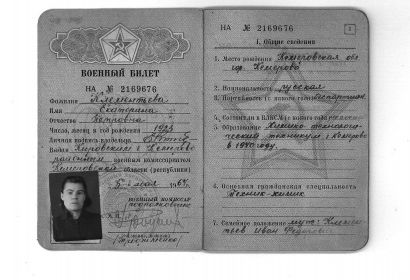 ВОЕННЫЙ БИЛЕТ
НА № 2169676
Фамилия Клементьева
Имя Екатерина
Отчество Петровна
Число, месяц и год рождения 1923
Личная подпись владельца
Выдан Кировским г. Кемерово
районным военным комиссариатом
Кемеровской области (республики)
5 мая 1964г.
Военный комиссар
подполковник
НА № 2169676
1
I. Общие сведения
1. Место рождения Кемеровская обл
гор. Кемерово
2. Национальность русская
3. Партийность (с какого года) беспартийная
4. Состоит ли в ВЛКСМ (с какого года)
5. Образование Химико технологи-
ческий техникум г. Кемерово
в 1940 году.
6. Основная гражданская специальность
Техник-химик
7. Семейное положение муж: Клемен-
тьев Иван Федорович